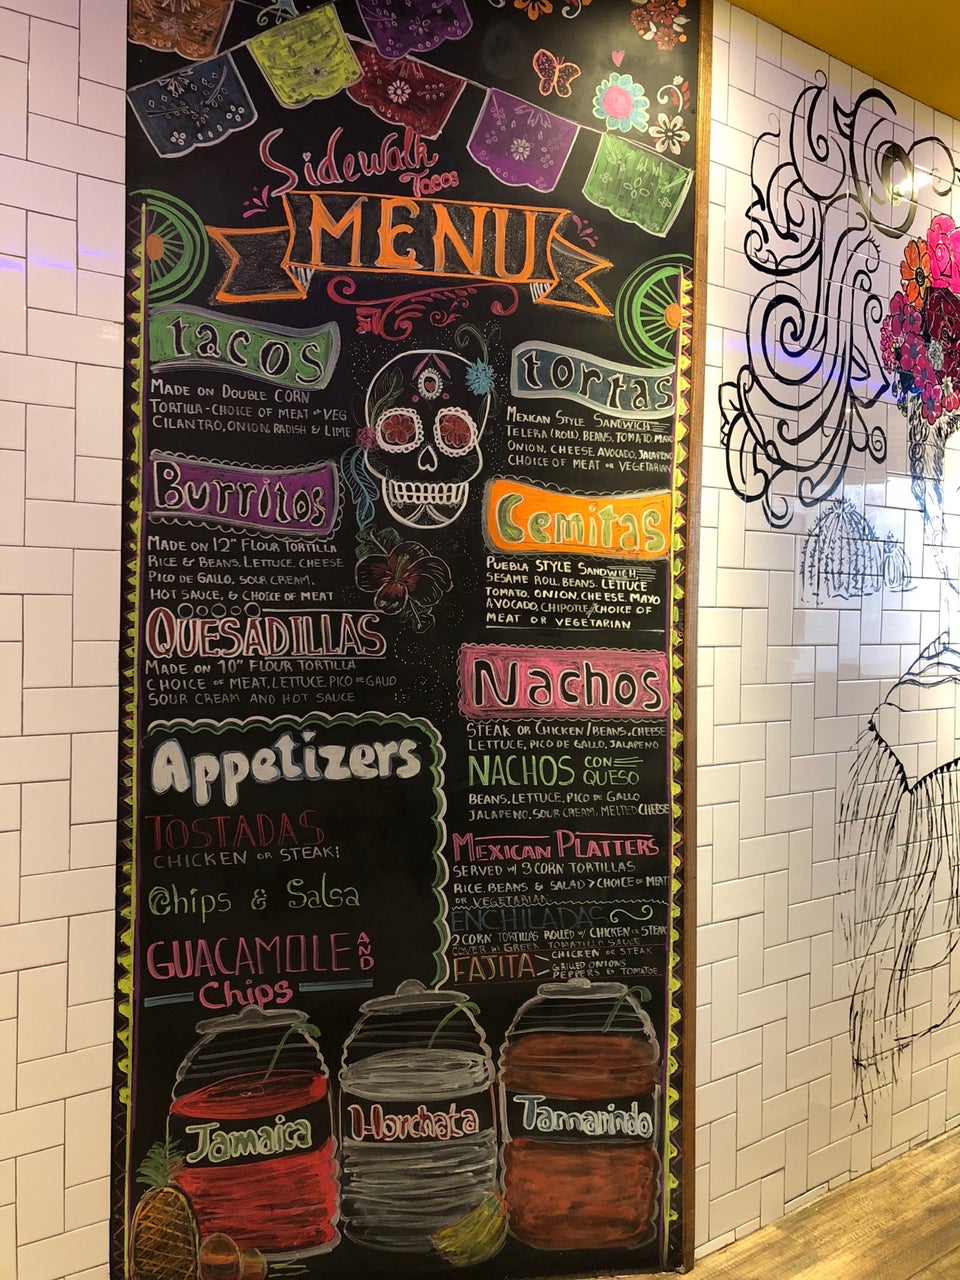 Sidewalk
Tacos
MENU
tacos
MADE ON DOUBLE CORN
TORTILLA - CHOICE OF MEAT OR VEG
CILANTRO, ONION, RADISH & LIME
Burritos
MADE ON 12" FLOUR TORTILLA
RICE & BEANS, LETTUCE, CHEESE
PICO DE GALLO, SOUR CREAM,
HOT SAUCE, & CHOICE OF MEAT
QUESADILLAS
MADE ON 10" FLOUR TORTILLA
CHOICE OF MEAT, LETTUCE, PICO DE GALLO
SOUR CREAM AND HOT SAUCE
Appetizers
TOSTADAS
CHICKEN OR STEAK!
Chips & Salsa
GUACAMOLE AND
Chips
tortas
MEXICAN STYLE SANDWICH
TELERA (ROLL), BEANS, TOMATO, MAYO
ONION, CHEESE, AVOCADO, JALAPENO
CHOICE OF MEAT OR VEGETARIAN
Cemitas
PUEBLA STYLE SANDWICH,
SESAME ROLL, BEANS, LETTUCE
TOMATO, ONION, CHEESE, MAYO
AVOCADO, CHIPOTLE, CHOICE OF
MEAT OR VEGETARIAN
Nachos
STEAK OR CHICKEN/BEANS, CHEESE
LETTUCE, PICO DE GALLO, JALAPENO
NACHOS CON QUESO
BEANS, LETTUCE, PICO DE GALLO
JALAPENO, SOUR CREAM, MELTED CHEESE
MEXICAN PLATTERS
SERVED W/ 3 CORN TORTILLAS
RICE, BEANS & SALAD > CHOICE OF MEAT
OR VEGETARIAN
ENCHILADAS
2 CORN TORTILLAS ROLLED W/ CHICKEN OR STEAK
COVER W/ GREEN TOMATILLO SAUCE
FAJITA CHICKEN OR STEAK
GRILLED ONIONS
PEPPERS & TOMATOE
Jamaica
Horchata
Tamarindo